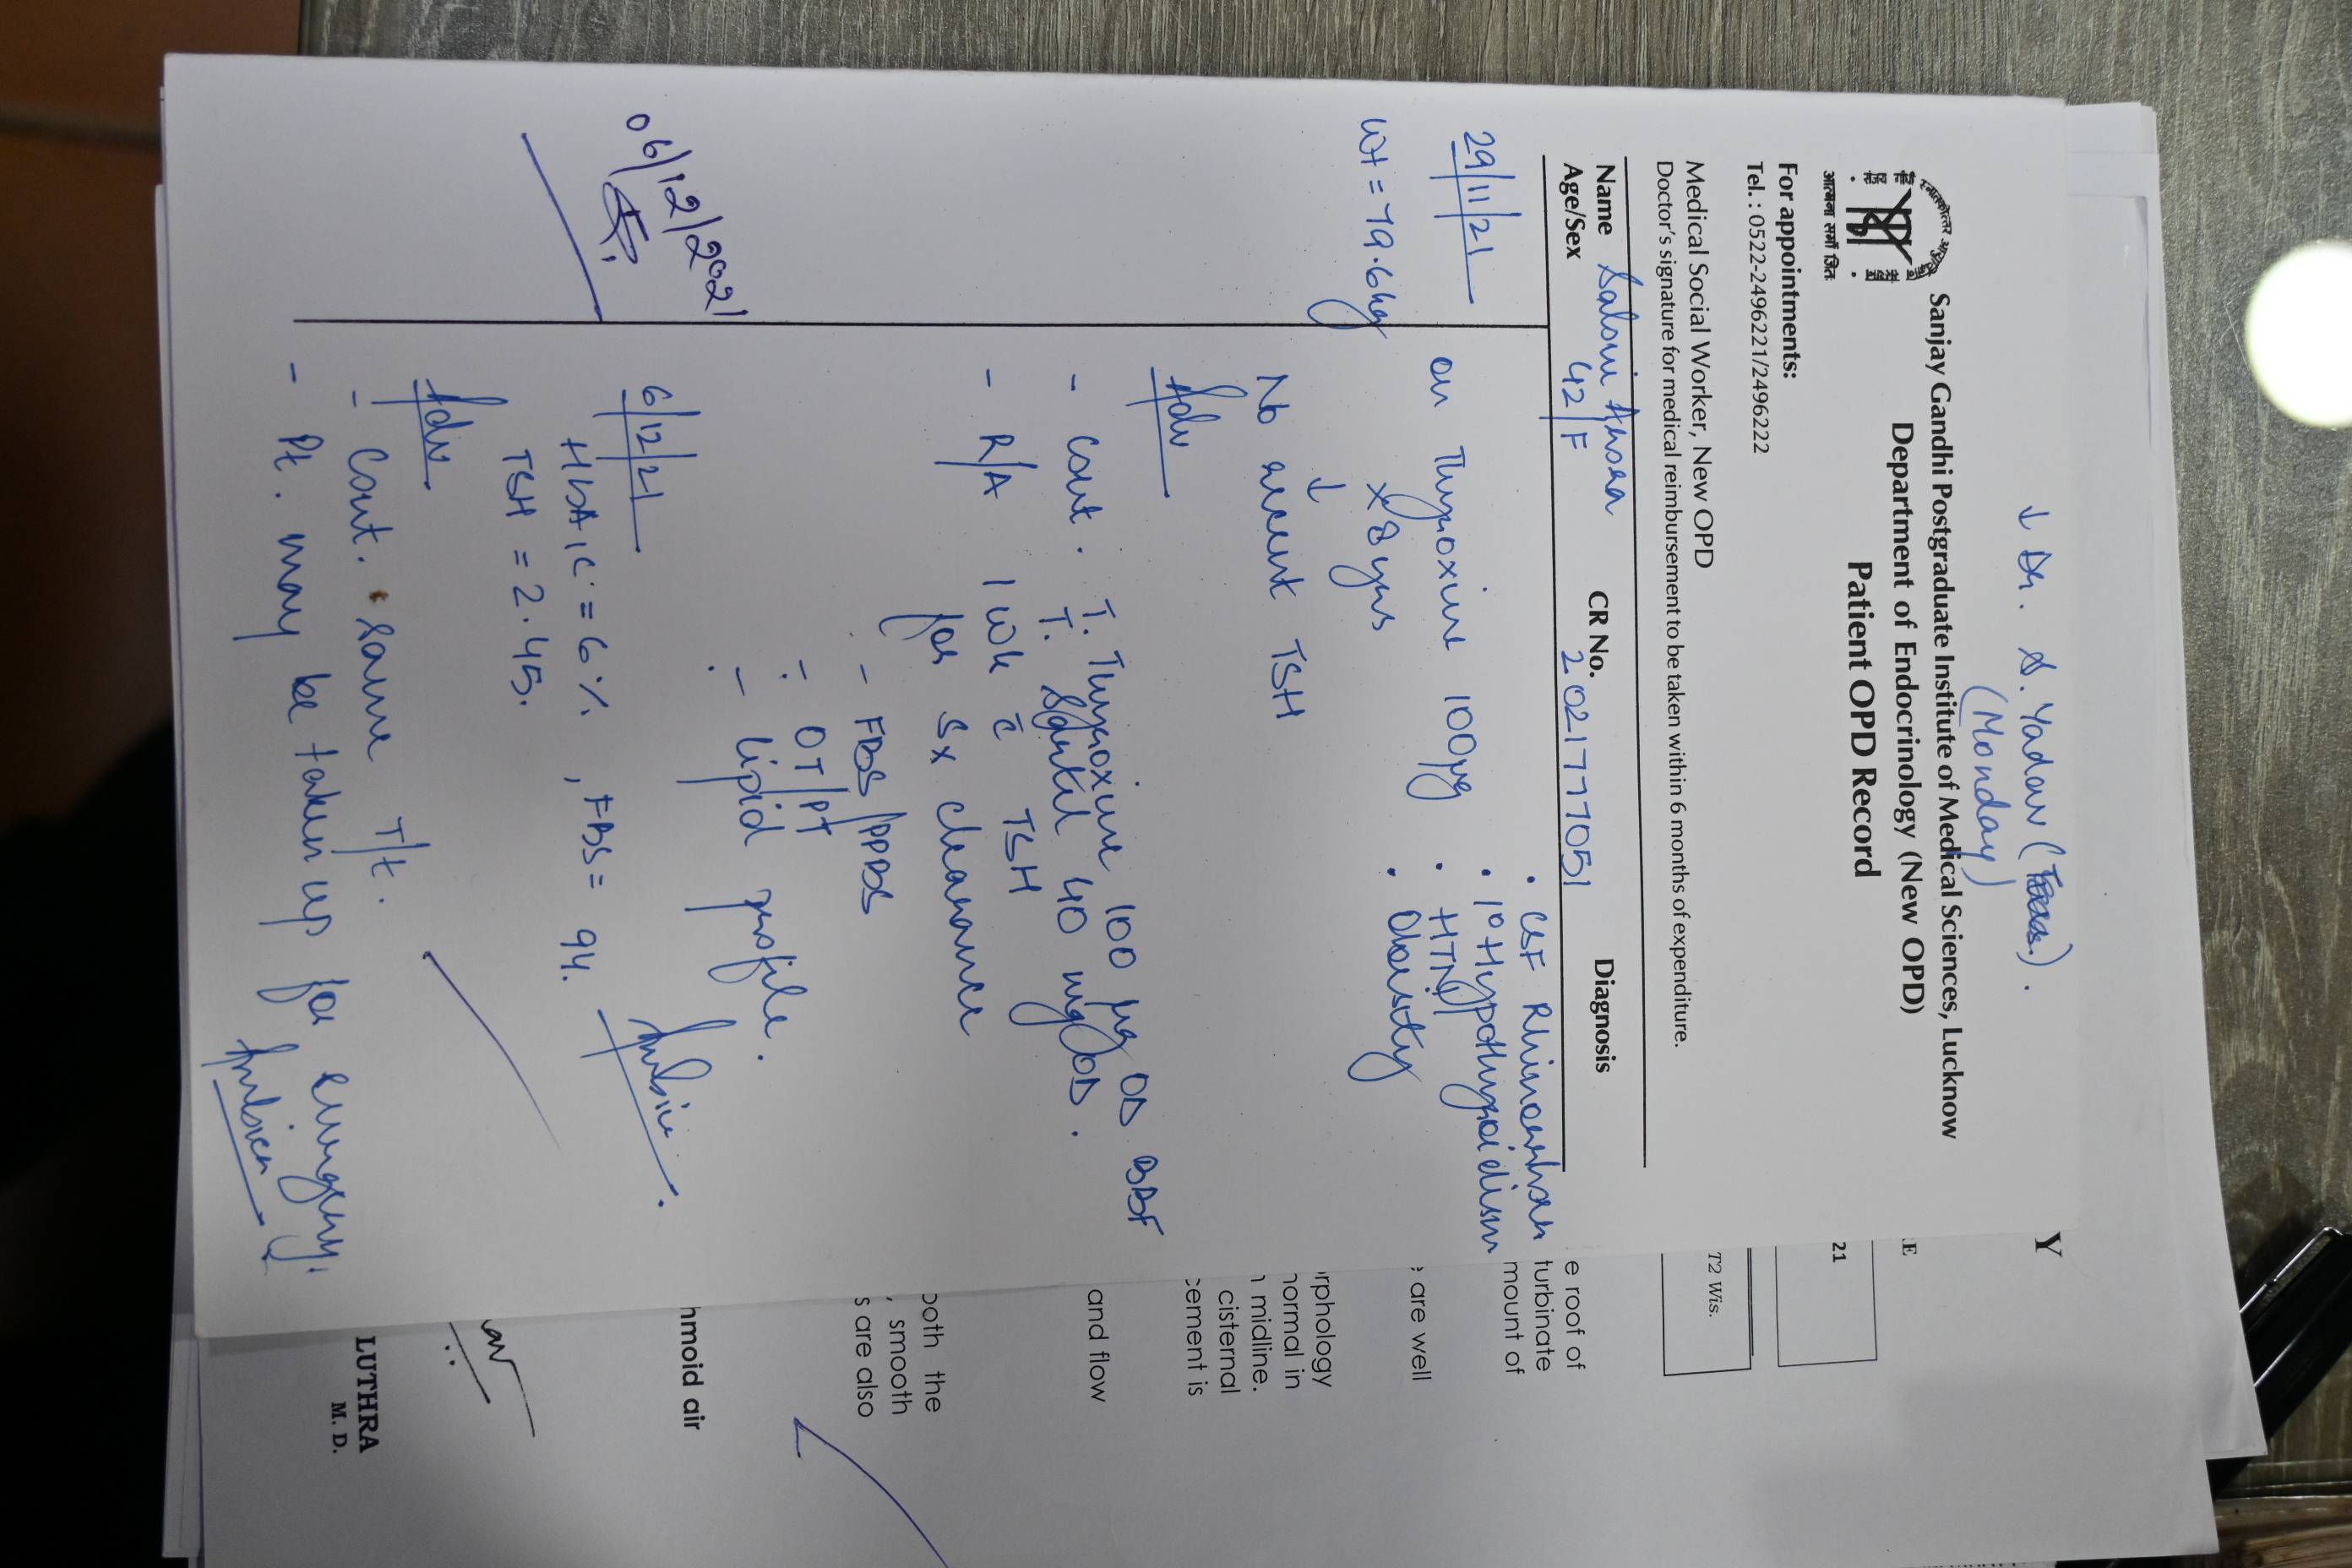 ↓ Dr. S. Yadav ( ).
(Monday)
स्नातकोत्तर
आत्मना सर्मो जित
Sanjay Gandhi Postgraduate Institute of Medical Sciences, Lucknow
Department of Endocrinology (New OPD)
Patient OPD Record
For appointments:
Tel. : 0522-2496221/2496222
Medical Social Worker, New OPD
Doctor's signature for medical reimbursement to be taken within 6 months of expenditure.
Name Saloni CR No. 2021777051 Diagnosis
Age/Sex 42/F
• CSF Rhinorrhoea
• 1° Hypothyroidism
• HTN
• Obesity
29/11/21
Wt = 79.6kg
on Thyroxine 100µg
x 8 yrs
↓
No recent TSH
Adv
- Cont. T. Thyroxine 100 µg OD BBF
T. 40 mg OD.
- R/A 1 wk c̄ TSH
for Sx clearance
- FBS/PPBS
- OT/PT
- lipid profile.
06/12/2021
6/12/21
HbA1c = 6%, FBS = 94.
TSH = 2.45.
Adv
- Cont. same T/t.
- Pt. may be taken up for
Y
RE
21
T2 Wis.
e roof of
turbinate
mount of
are well
rphology
normal in
n midline.
cisternal
cement is
and flow
both the
, smooth
s are also
hmoid air
LUTHRA
M. D.